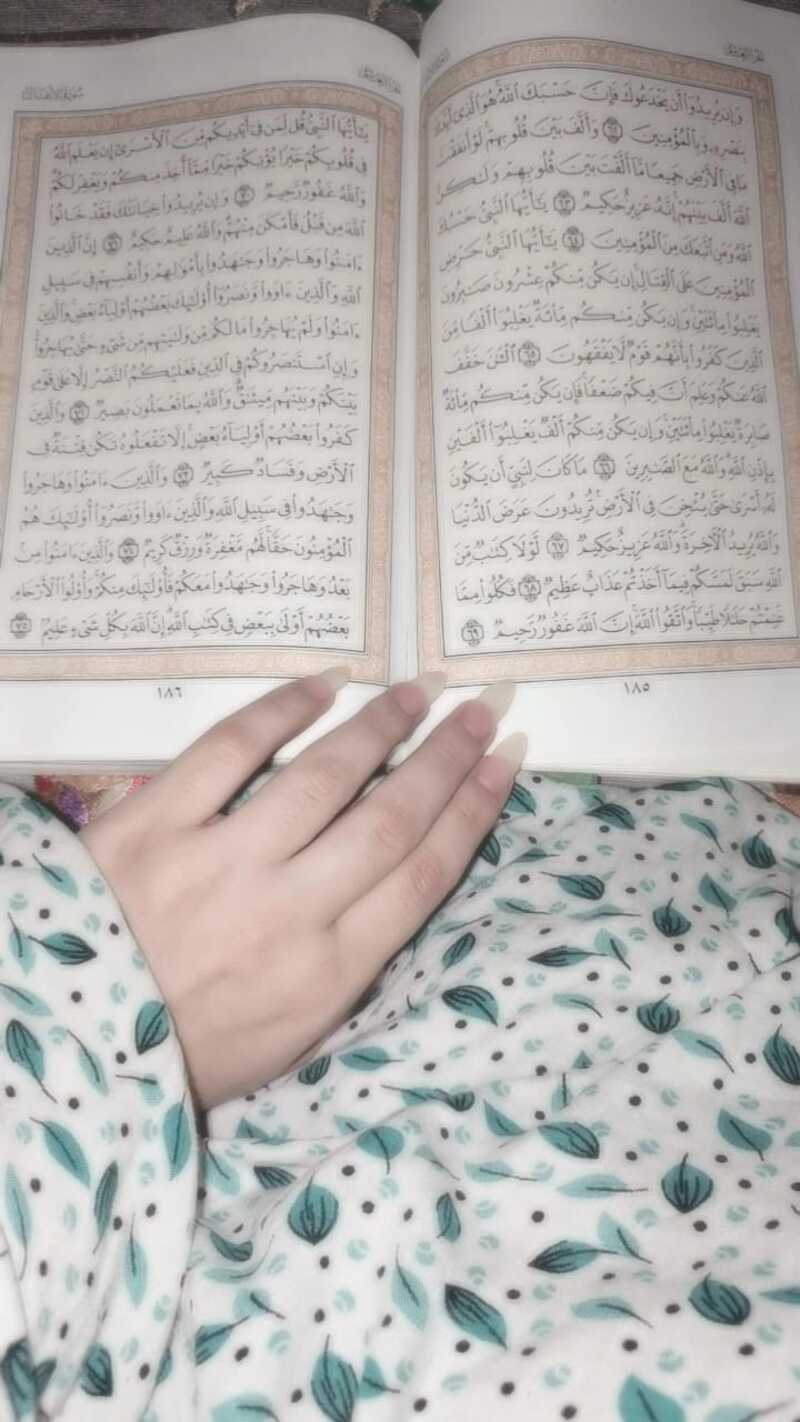 الجزء العاشر
وَإِن يُرِيدُوٓاْ أَن يَخْدَعُوكَ فَإِنَّ حَسْبَكَ ٱللَّهُۚ هُوَ ٱلَّذِيٓ أَيَّدَكَ
بِنَصْرِهِۦ وَبِٱلْمُؤْمِنِينَ ٦٢ وَأَلَّفَ بَيْنَ قُلُوبِهِمْۚ لَوْ أَنفَقْتَ
مَا فِي ٱلْأَرْضِ جَمِيعًا مَّآ أَلَّفْتَ بَيْنَ قُلُوبِهِمْ وَلَٰكِنَّ
ٱللَّهَ أَلَّفَ بَيْنَهُمْۚ إِنَّهُۥ عَزِيزٌ حَكِيمٌ ٦٣ يَٰٓأَيُّهَا ٱلنَّبِيُّ حَسْبُكَ
ٱللَّهُ وَمَنِ ٱتَّبَعَكَ مِنَ ٱلْمُؤْمِنِينَ ٦٤ يَٰٓأَيُّهَا ٱلنَّبِيُّ حَرِّضِ
ٱلْمُؤْمِنِينَ عَلَى ٱلْقِتَالِۚ إِن يَكُن مِّنكُمْ عِشْرُونَ صَٰبِرُونَ
يَغْلِبُواْ مِاْئَتَيْنِۚ وَإِن يَكُن مِّنكُم مِّاْئَةٌ يَغْلِبُوٓاْ أَلْفًا مِّنَ
ٱلَّذِينَ كَفَرُواْ بِأَنَّهُمْ قَوْمٌ لَّا يَفْقَهُونَ ٦٥ ٱلْـَٰٔنَ خَفَّفَ
ٱللَّهُ عَنكُمْ وَعَلِمَ أَنَّ فِيكُمْ ضَعْفًاۚ فَإِن يَكُن مِّنكُم مِّاْئَةٌ
صَابِرَةٌ يَغْلِبُواْ مِاْئَتَيْنِۚ وَإِن يَكُن مِّنكُمْ أَلْفٌ يَغْلِبُوٓاْ أَلْفَيْنِ
بِإِذْنِ ٱللَّهِۗ وَٱللَّهُ مَعَ ٱلصَّٰبِرِينَ ٦٦ مَا كَانَ لِنَبِيٍّ أَن يَكُونَ
لَهُۥٓ أَسْرَىٰ حَتَّىٰ يُثْخِنَ فِي ٱلْأَرْضِۚ تُرِيدُونَ عَرَضَ ٱلدُّنْيَا
وَٱللَّهُ يُرِيدُ ٱلْأٓخِرَةَۗ وَٱللَّهُ عَزِيزٌ حَكِيمٌ ٦٧ لَّوْلَا كِتَٰبٌ مِّنَ
ٱللَّهِ سَبَقَ لَمَسَّكُمْ فِيمَآ أَخَذْتُمْ عَذَابٌ عَظِيمٌ ٦٨ فَكُلُواْ مِمَّا
غَنِمْتُمْ حَلَٰلًا طَيِّبًاۚ وَٱتَّقُواْ ٱللَّهَۚ إِنَّ ٱللَّهَ غَفُورٌ رَّحِيمٌ ٦٩
١٨٥
الجزء العاشر
سورة الأنفال
يَٰٓأَيُّهَا ٱلنَّبِيُّ قُل لِّمَن فِيٓ أَيْدِيكُم مِّنَ ٱلْأَسْرَىٰٓ إِن يَعْلَمِ ٱللَّهُ
فِي قُلُوبِكُمْ خَيْرًا يُؤْتِكُمْ خَيْرًا مِّمَّآ أُخِذَ مِنكُمْ وَيَغْفِرْ لَكُمْۚ
وَٱللَّهُ غَفُورٌ رَّحِيمٌ ٧٠ وَإِن يُرِيدُواْ خِيَانَتَكَ فَقَدْ خَانُواْ
ٱللَّهَ مِن قَبْلُ فَأَمْكَنَ مِنْهُمْۗ وَٱللَّهُ عَلِيمٌ حَكِيمٌ ٧١ إِنَّ ٱلَّذِينَ
ءَامَنُواْ وَهَاجَرُواْ وَجَٰهَدُواْ بِأَمْوَٰلِهِمْ وَأَنفُسِهِمْ فِي سَبِيلِ
ٱللَّهِ وَٱلَّذِينَ ءَاوَواْ وَّنَصَرُوٓاْ أُوْلَٰٓئِكَ بَعْضُهُمْ أَوْلِيَآءُ بَعْضٍۚ وَٱلَّذِينَ
ءَامَنُواْ وَلَمْ يُهَاجِرُواْ مَا لَكُم مِّن وَلَٰيَتِهِم مِّن شَيْءٍ حَتَّىٰ يُهَاجِرُواْۚ
وَإِنِ ٱسْتَنصَرُوكُمْ فِي ٱلدِّينِ فَعَلَيْكُمُ ٱلنَّصْرُ إِلَّا عَلَىٰ قَوْمٍۭ
بَيْنَكُمْ وَبَيْنَهُم مِّيثَٰقٌۗ وَٱللَّهُ بِمَا تَعْمَلُونَ بَصِيرٌ ٧٢ وَٱلَّذِينَ
كَفَرُواْ بَعْضُهُمْ أَوْلِيَآءُ بَعْضٍۚ إِلَّا تَفْعَلُوهُ تَكُن فِتْنَةٌ فِي
ٱلْأَرْضِ وَفَسَادٌ كَبِيرٌ ٧٣ وَٱلَّذِينَ ءَامَنُواْ وَهَاجَرُواْ
وَجَٰهَدُواْ فِي سَبِيلِ ٱللَّهِ وَٱلَّذِينَ ءَاوَواْ وَّنَصَرُوٓاْ أُوْلَٰٓئِكَ هُمُ
ٱلْمُؤْمِنُونَ حَقًّاۚ لَّهُم مَّغْفِرَةٌ وَرِزْقٌ كَرِيمٌ ٧٤ وَٱلَّذِينَ ءَامَنُواْ مِنۢ
بَعْدُ وَهَاجَرُواْ وَجَٰهَدُواْ مَعَكُمْ فَأُوْلَٰٓئِكَ مِنكُمْۚ وَأُوْلُواْ ٱلْأَرْحَامِ
بَعْضُهُمْ أَوْلَىٰ بِبَعْضٍ فِي كِتَٰبِ ٱللَّهِۚ إِنَّ ٱللَّهَ بِكُلِّ شَيْءٍ عَلِيمٌۢ ٧٥
١٨٦